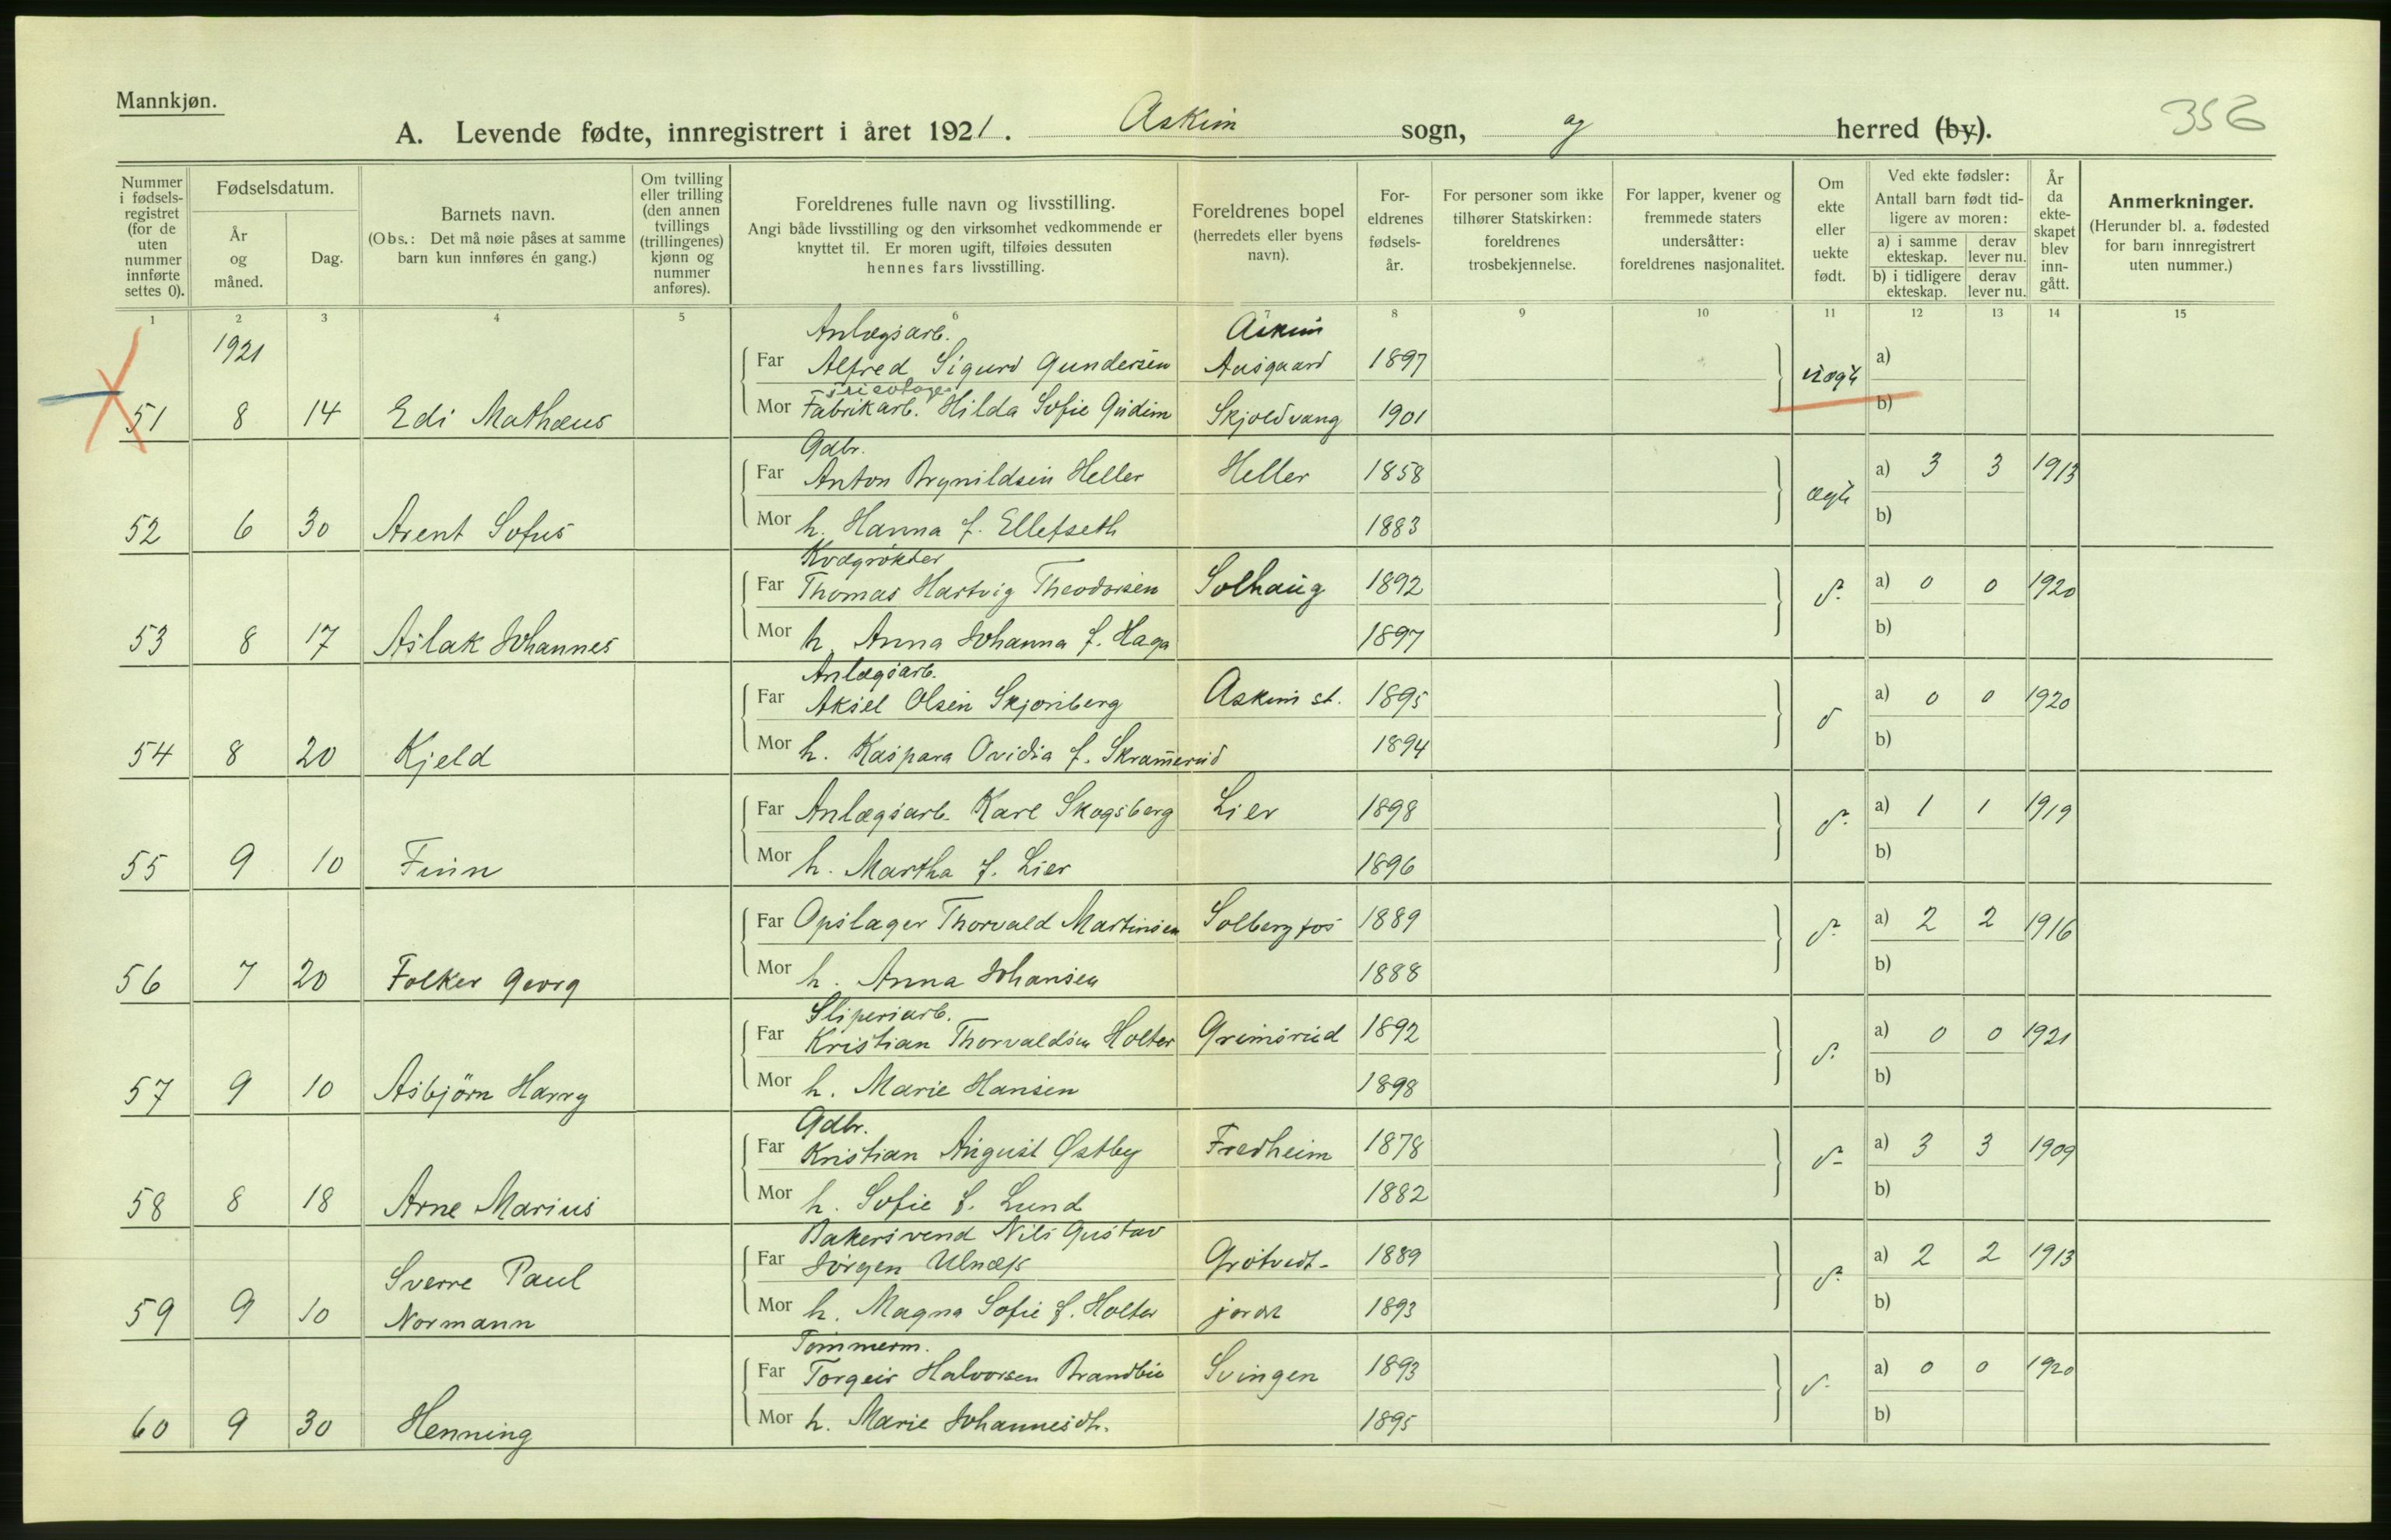 Mannkjøn.
356
A. Levende fødte, innregistrert i året 1921. Askim sogn, og herred (by).
Nummer i fødsels-registret (for de uten nummer innførte settes 0).
Fødselsdatum.
År og måned.
Dag.
Barnets navn.
(Obs.: Det må nøie påses at samme barn kun innføres én gang.)
Om tvilling eller trilling (den annen tvillings (trillingenes) kjønn og nummer anføres).
Foreldrenes fulle navn og livsstilling.
Angi både livsstilling og den virksomhet vedkommende er knyttet til. Er moren ugift, tilføies dessuten hennes fars livsstilling.
Foreldrenes bopel (herredets eller byens navn).
For-eldrenes fødsels-år.
For personer som ikke tilhører Statskirken: foreldrenes trosbekjennelse.
For lapper, kvener og fremmede staters undersåtter: foreldrenes nasjonalitet.
Om ekte eller uekte født.
Ved ekte fødsler: Antall barn født tid-ligere av moren:
a) i samme ekteskap. derav lever nu.
b) i tidligere ekteskap. derav lever nu.
År da ekte-skapet blev inn-gått.
Anmerkninger.
(Herunder bl. a. fødested for barn innregistrert uten nummer.)
1 2 3 4 5 6 7 8 9 10 11 12 13 14 15
1921
Anlægsarb. Askim
Far Alfred Sigurd Gundersen Aasgaard 1897 uægte a)
Tricotage
51 8 14 Edi Mathæus Mor Fabrikarb. Hilda Sofie Gudim Skjoldvang 1901 b)
Gdbr.
Far Anton Brynildsen Heller Heller 1858 ægte a) 3 3 1913
52 6 30 Arent Sofus Mor h. Hanna f. Ellefseth 1883 b)
Kvægrøkter
Far Thomas Hartvig Theodorsen Solhaug 1892 d. a) 0 0 1920
53 8 17 Aslak Johannes Mor h. Anna Johanna f. Haga 1897 b)
Anlægsarb.
Far Aksel Olsen Skjønberg Askim st. 1895 d a) 0 0 1920
54 8 20 Kjeld Mor h. Kaspara Ovidia f. Skramerud 1894 b)
Far Anlægsarb. Karl Skogsberg Lier 1898 d. a) 1 1 1919
55 9 10 Finn Mor h. Martha f. Lier 1896 b)
Far Opslager Thorvald Martinsen Solbergfos 1889 d. a) 2 2 1916
56 7 20 Folker Georg Mor h. Anna Johansen 1888 b)
Sliperiarb.
Far Kristian Thorvaldsen Holter Grimsrud 1892 d. a) 0 0 1921
57 9 10 Asbjörn Harry Mor h. Marie Hansen 1898 b)
Gdbr.
Far Kristian August Østby Fredheim 1878 d. a) 3 3 1909
58 8 18 Arne Marius Mor h. Sofie f. Lund 1882 b)
Bakersvend Nils Gustav
Far Jörgen Ulnæss Grötvedt- 1889 d. a) 2 2 1913
59 9 10 Sverre Paul
Normann Mor h. Magna Sofie f. Holter jordet 1893 b)
Tømmerm.
Far Torgeir Halvorsen Brandlie Svingen 1893 d. a) 0 0 1920
60 9 30 Henning Mor h. Marie Johannesdt. 1895 b)